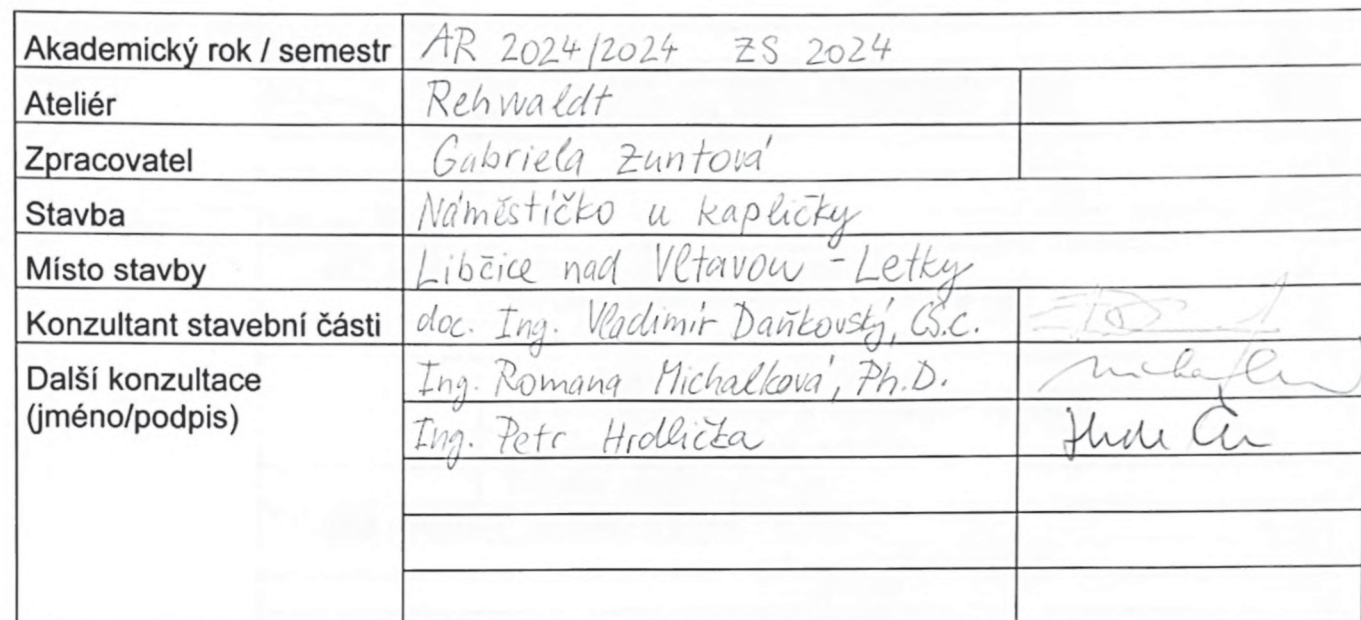 Akademický rok / semestr AR 2024/2024 ZS 2024
Ateliér Rehwaldt
Zpracovatel Gabriela Zuntová
Stavba Náměstíčko u kapličky
Místo stavby Libčice nad Vltavou - Letky
Konzultant stavební části doc. Ing. Vladimír Daňkovský, CS.c.
Další konzultace Ing. Romana Michalková, Ph.D.
(jméno/podpis) Ing. Petr Hrdlička